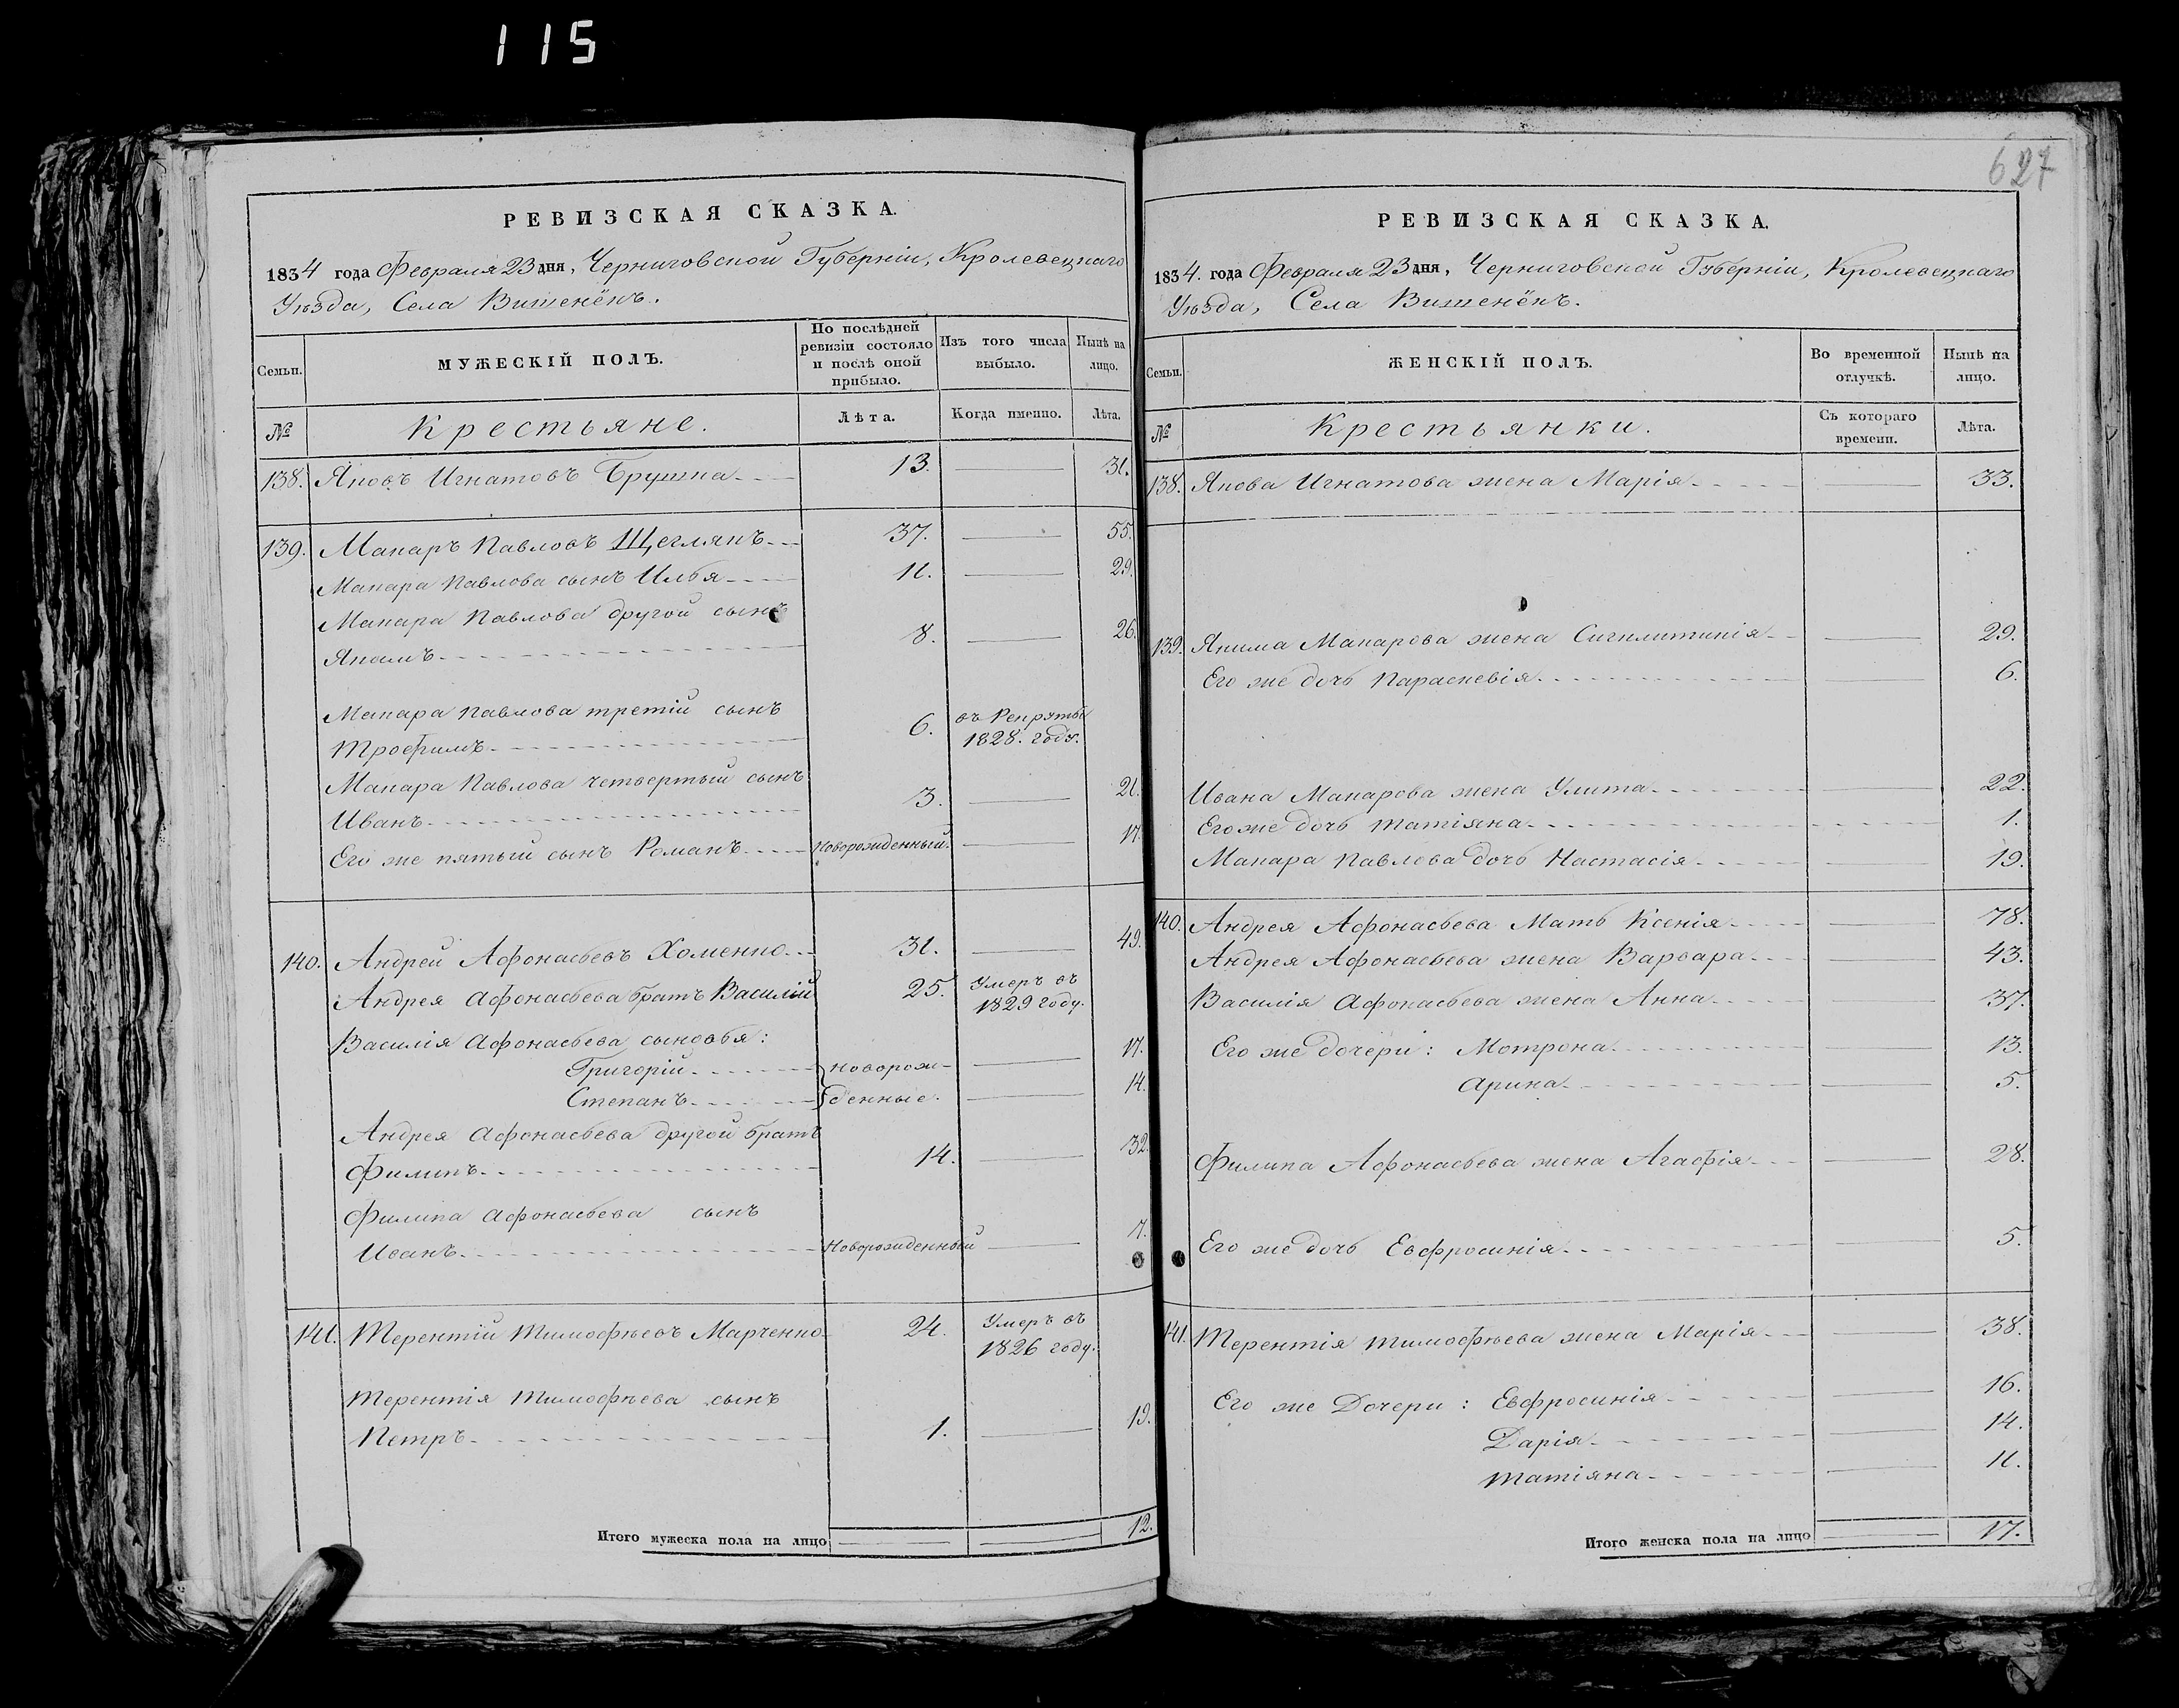 115
627
РЕВИЗСКАЯ СКАЗКА.
1834 года Февраля 23 дня, Черниговской Губерніи, Кролевецкаго
Уѣзда, Села Вишенёкъ.
Семьи.
МУЖЕСКІЙ ПОЛЪ.
По послѣдней
ревизіи состояло
и послѣ оной
прибыло.
Изъ того числа
выбыло.
Нынѣ на
лицо.
№
Крестьяне.
Лѣта.
Когда именно.
Лѣта.
138. Яковъ Игнатовъ Брушка 13. 31.
139. Макаръ Павловъ Щеглякъ 37. 55.
Макара Павлова сынъ Илья 11. 29.
Макара Павлова другой сынъ
Якимъ 8. 26.
Макара Павлова третій сынъ
Трофимъ 6. въ Рекруты 1828. году.
Макара Павлова четвертый сынъ
Иванъ 3. 21.
Его же пятый сынъ Романъ Новорожденный. 17.
140. Андрей Афонасьевъ Хоменко 31. 49.
Андрея Афонасьева братъ Василій 25. Умеръ въ 1829 году.
Василія Афонасьева сыновья:
Григорій Новорож- 17.
Степанъ денные. 14.
Андрея Афонасьева другой братъ
Филипъ 14. 32.
Филипа Афонасьева сынъ
Иванъ Новорожденный 7.
141. Терентій Тимофѣевъ Марченко 24. Умеръ въ 1826 году.
Терентія Тимофѣева сынъ
Петръ 1. 19.
Итого мужеска пола на лицо 12.
РЕВИЗСКАЯ СКАЗКА.
1834. года Февраля 23 дня, Черниговской Губерніи, Кролевецкаго
Уѣзда, Села Вишенёкъ.
Семьи.
ЖЕНСКІЙ ПОЛЪ.
Во временной
отлучкѣ.
Нынѣ на
лицо.
№
Крестьянки.
Съ котораго
времени.
Лѣта.
138. Якова Игнатова жена Марія 33.
139. Якима Макарова жена Сигклитикія 29.
Его же дочь Параскевія 6.
Ивана Макарова жена Улита 22.
Его же дочь Татіяна 1.
Макара Павлова дочь Настасія 19.
140. Андрея Афонасьева Мать Ксенія 78.
Андрея Афонасьева жена Варвара 43.
Василія Афонасьева жена Анна 37.
Его же дочери: Мотрона 13.
Арина 5.
Филипа Афонасьева жена Агафія 28.
Его же дочь Евфросинія 5.
141. Терентія Тимофѣева жена Марія 38.
Его же Дочери: Евфросинія 16.
Дарія 14.
Татіяна 11.
Итого женска пола на лицо 17.